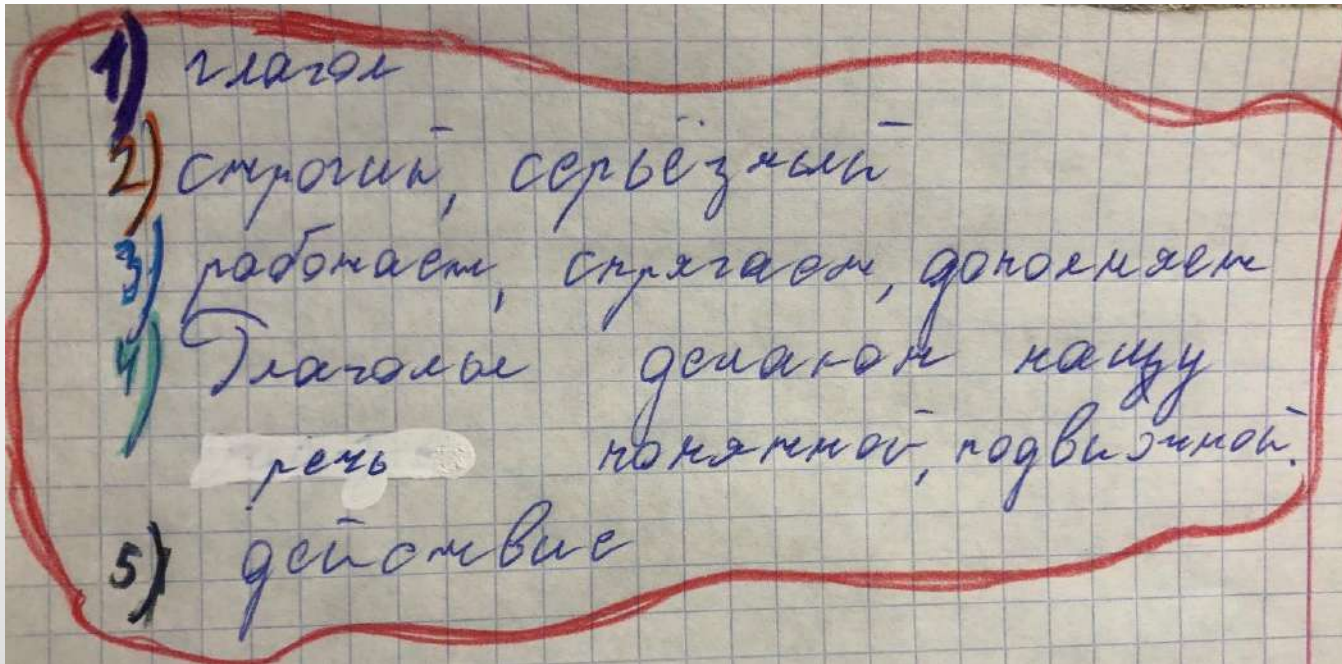 1) глагол
2) строгий, серьёзный
3) работает, спрягает, дополняет
4) Глаголы делают нашу
речь понятной, подвижной.
5) действие